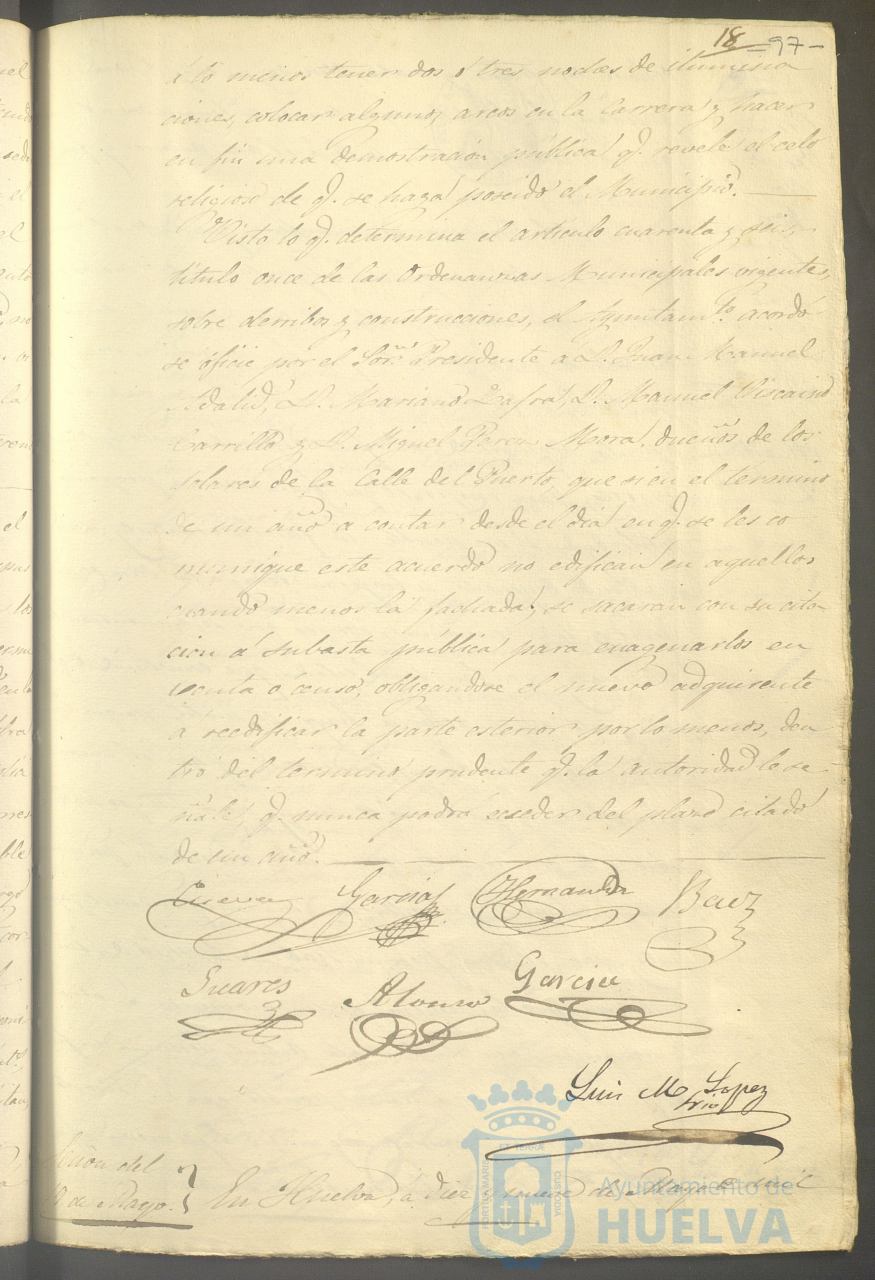 18 -97-
á lo menos tener dos ó tres noches de ilumina
ciones, colocar algunos arcos en la Carrera y hacer
en fin una demostracion pública q.e revele el celo
religioso de q.e se haya poseido el Municipio.
Visto lo q.e determina el articulo cuarenta y seis,
titulo once de las Ordenanzas Municipales vigentes,
sobre derribos y construcciones, el Ayuntam.to acordó
se oficie por el Sor. Presidente a D. Juan Manuel
Adalid, D. Mariano Zafra, D. Manuel Viscaino
Carrillo y D. Miguel Perez Mora, dueños de los
solares de la Calle del Puerto, que si en el termino
de un año a contar desde el dia en q.e se les co
munique este acuerdo no edifican en aquellos
cuando menos la fachada, se sacaran con su cita-
cion á subasta pública para enagenarlos en
venta ó censo, obligandose el nuevo adquirente
á reedificar la parte esterior por lo menos, den
tro del termino prudente q.e la autoridad le se-
ñale, q.e nunca podrá exceder del plazo citado
de un año.
Garcia Hernandez Baez
Suares Alonso Garcia
Luis M Lopez
Srio
del
de Mayo. En Huelva, á diez y nueve de Mayo de mil
Ayuntamiento de
HUELVA